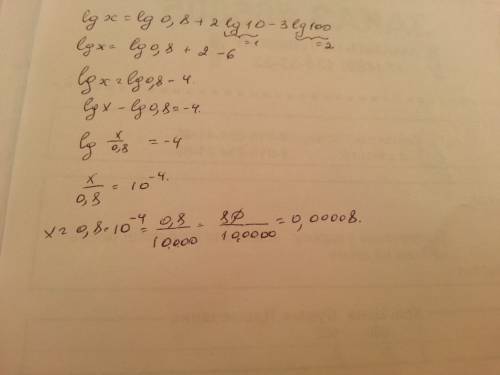 lg x = lg 0,8 + 2 lg 10 - 3 lg 100
=1 =2
lg x = lg 0,8 + 2 - 6
lg x = lg 0,8 - 4
lg x - lg 0,8 = -4.
lg x/0,8 = -4
x/0,8 = 10^-4.
x = 0,8 · 10^-4 = 0,8/10.000 = = 0,00008.